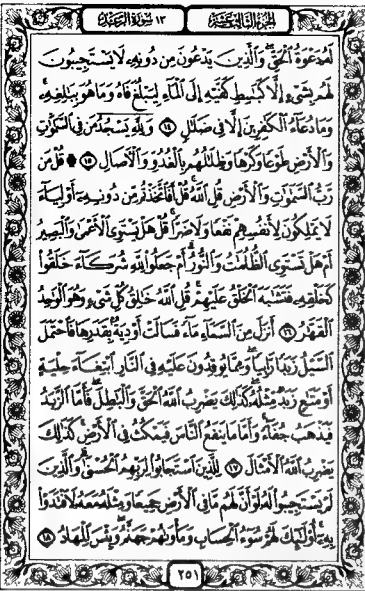 الجزء الثالث عشر ١٣ سورة الرعد
لَهُۥ دَعۡوَةُ ٱلۡحَقِّۚ وَٱلَّذِينَ يَدۡعُونَ مِن دُونِهِۦ لَا يَسۡتَجِيبُونَ
لَهُم بِشَيۡءٍ إِلَّا كَبَٰسِطِ كَفَّيۡهِ إِلَى ٱلۡمَآءِ لِيَبۡلُغَ فَاهُ وَمَا هُوَ بِبَٰلِغِهِۦۚ
وَمَا دُعَآءُ ٱلۡكَٰفِرِينَ إِلَّا فِي ضَلَٰلٖ ١٤ وَلِلَّهِۤ يَسۡجُدُۤ مَن فِي ٱلسَّمَٰوَٰتِ
وَٱلۡأَرۡضِ طَوۡعٗا وَكَرۡهٗا وَظِلَٰلُهُم بِٱلۡغُدُوِّ وَٱلۡأٓصَالِ ١٥ قُلۡ مَن
رَّبُّ ٱلسَّمَٰوَٰتِ وَٱلۡأَرۡضِ قُلِ ٱللَّهُۚ قُلۡ أَفَٱتَّخَذۡتُم مِّن دُونِهِۦٓ أَوۡلِيَآءَ
لَا يَمۡلِكُونَ لِأَنفُسِهِمۡ نَفۡعٗا وَلَا ضَرّٗاۚ قُلۡ هَلۡ يَسۡتَوِي ٱلۡأَعۡمَىٰ وَٱلۡبَصِيرُ
أَمۡ هَلۡ تَسۡتَوِي ٱلظُّلُمَٰتُ وَٱلنُّورُۗ أَمۡ جَعَلُواْ لِلَّهِ شُرَكَآءَ خَلَقُواْ
كَخَلۡقِهِۦ فَتَشَٰبَهَ ٱلۡخَلۡقُ عَلَيۡهِمۡۚ قُلِ ٱللَّهُ خَٰلِقُ كُلِّ شَيۡءٖ وَهُوَ ٱلۡوَٰحِدُ
ٱلۡقَهَّٰرُ ١٦ أَنزَلَ مِنَ ٱلسَّمَآءِ مَآءٗ فَسَالَتۡ أَوۡدِيَةُۢ بِقَدَرِهَا فَٱحۡتَمَلَ
ٱلسَّيۡلُ زَبَدٗا رَّابِيٗاۖ وَمِمَّا يُوقِدُونَ عَلَيۡهِ فِي ٱلنَّارِ ٱبۡتِغَآءَ حِلۡيَةٍ
أَوۡ مَتَٰعٖ زَبَدٞ مِّثۡلُهُۥۚ كَذَٰلِكَ يَضۡرِبُ ٱللَّهُ ٱلۡحَقَّ وَٱلۡبَٰطِلَۚ فَأَمَّا ٱلزَّبَدُ
فَيَذۡهَبُ جُفَآءٗۖ وَأَمَّا مَا يَنفَعُ ٱلنَّاسَ فَيَمۡكُثُ فِي ٱلۡأَرۡضِۚ كَذَٰلِكَ
يَضۡرِبُ ٱللَّهُ ٱلۡأَمۡثَالَ ١٧ لِلَّذِينَ ٱسۡتَجَابُواْ لِرَبِّهِمُ ٱلۡحُسۡنَىٰۚ وَٱلَّذِينَ
لَمۡ يَسۡتَجِيبُواْ لَهُۥ لَوۡ أَنَّ لَهُم مَّا فِي ٱلۡأَرۡضِ جَمِيعٗا وَمِثۡلَهُۥ مَعَهُۥ لَٱفۡتَدَوۡاْ
بِهِۦٓۚ أُوْلَٰٓئِكَ لَهُمۡ سُوٓءُ ٱلۡحِسَابِ وَمَأۡوَىٰهُمۡ جَهَنَّمُۖ وَبِئۡسَ ٱلۡمِهَادُ ١٨
٢٥١